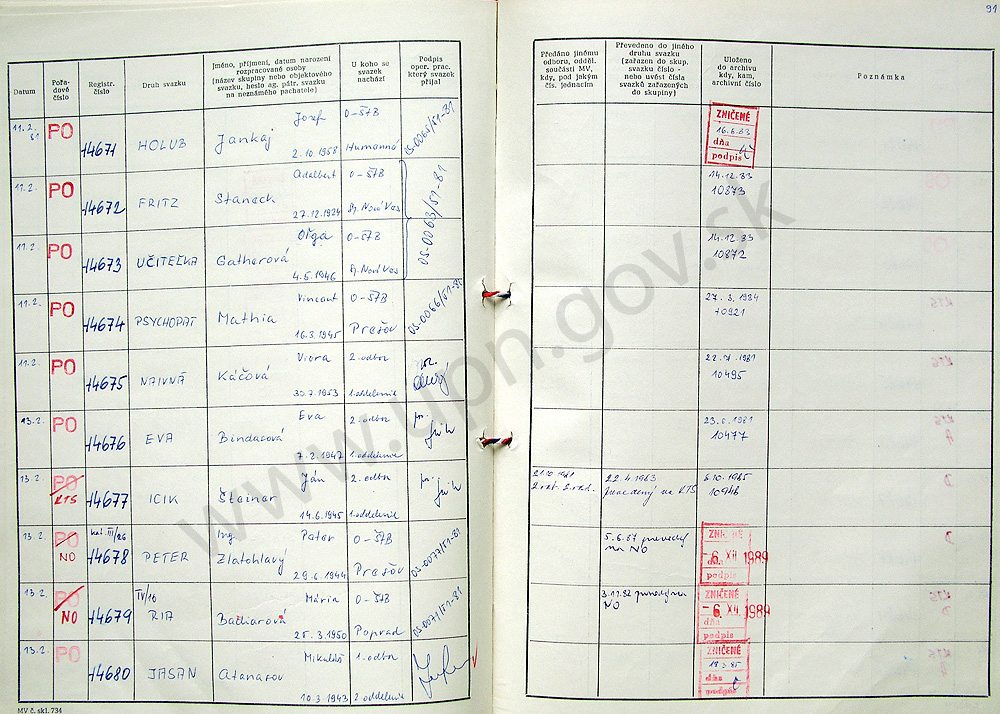 91
Datum
Pořa-
dové
číslo
Registr.
číslo
Druh svazku
Jméno, příjmení, datum narození
rozpracované osoby
(název skupiny nebo objektového
svazku, heslo ag. pátr. svazku
na neznámého pachatele)
U koho se
svazek
nachází
Podpis
oper. prac.
který svazek
přijal
Předáno jinému
odboru, odděl.
součásti MV,
kdy, pod jakým
čís. jednacím
Převedeno do jiného
druhu svazku
(zařazen do skup.
svazku číslo -
nebo uvést čísla
svazků zařazených
do skupiny)
Uloženo
do archívu
kdy, kam,
archivní číslo
Poznámka
11.2.
81
PO
14671
HOLUB
Jozef
Jankaj
2.10.1958
O-ŠTB
Humenné
OS-0065/51-81
ZNIČENÉ
16.6.83
dňa
podpis
11.2.
PO
14672
FRITZ
Adalbert
Staneck
27.12.1924
O-ŠTB
Sp. Nová Ves
OS-0063/51-81
14.12.83
10873
11.2.
PO
14673
UČITEĽKA
Oľga
Gatherová
4.5.1946
O-ŠTB
Sp. Nová Ves
14.12.83
10872
11.2.
PO
14674
PSYCHOPAT
Vincent
Mathia
16.3.1945
O-ŠTB
Prešov
OS-0066/51-81
27.3.1984
10921
11.2.
PO
14675
NAIVNÁ
Viera
Káčová
30.7.1953
2.odbor
1.oddelenie
22.7.1981
10495
13.2.
PO
14676
EVA
Eva
Bindasová
7.2.1947
2.odbor
1.oddelenie
23.6.1981
10477
13.2.
PO
RTS
14677
ICIK
Ján
Šteiner
14.6.1945
2.odbor
1.oddelenie
21.10.1981
22.4.1983
prevedený na RTS
6.10.1985
10946
13.2.
PO
NO
14678
PETER
Ing. Peter
Zlatohlavý
29.6.1944
O-ŠTB
Prešov
OS-0077/51-81
5.6.87 prevedený
na NO
ZNIČENÉ
-6.XII.1989
dňa
podpis
13.2.
PO
NO
IV/10
14679
RIA
Mária
Balliarová
25.3.1950
O-ŠTB
Poprad
OS-0071/51-81
NO
ZNIČENÉ
-6.XII.1989
dňa
podpis
13.2.
PO
14680
JASAN
Mikuláš
Atanasov
10.3.1943
1.odbor
2.oddelenie
ZNIČENÉ
dňa
podpis
MV č. skl. 734
www.upn.gov.sk